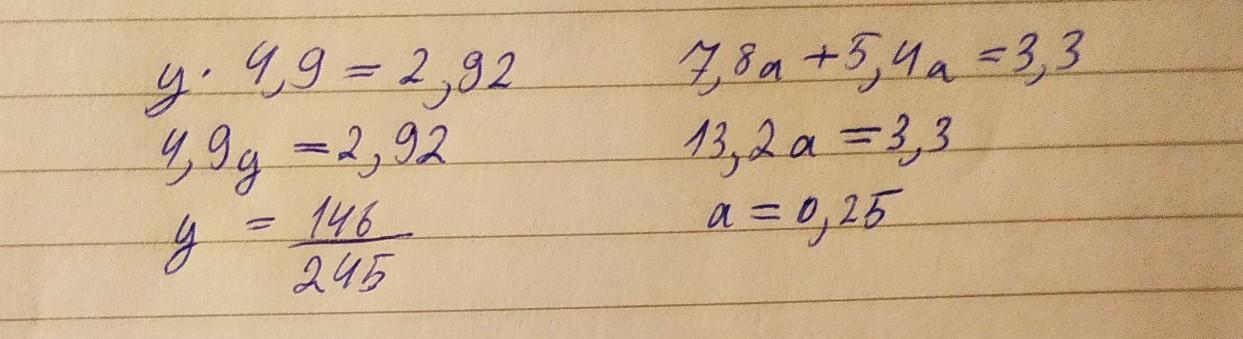 y · 4,9 = 2,92
4,9y = 2,92
y = 146/245
7,8a + 5,4a = 3,3
13,2a = 3,3
a = 0,25